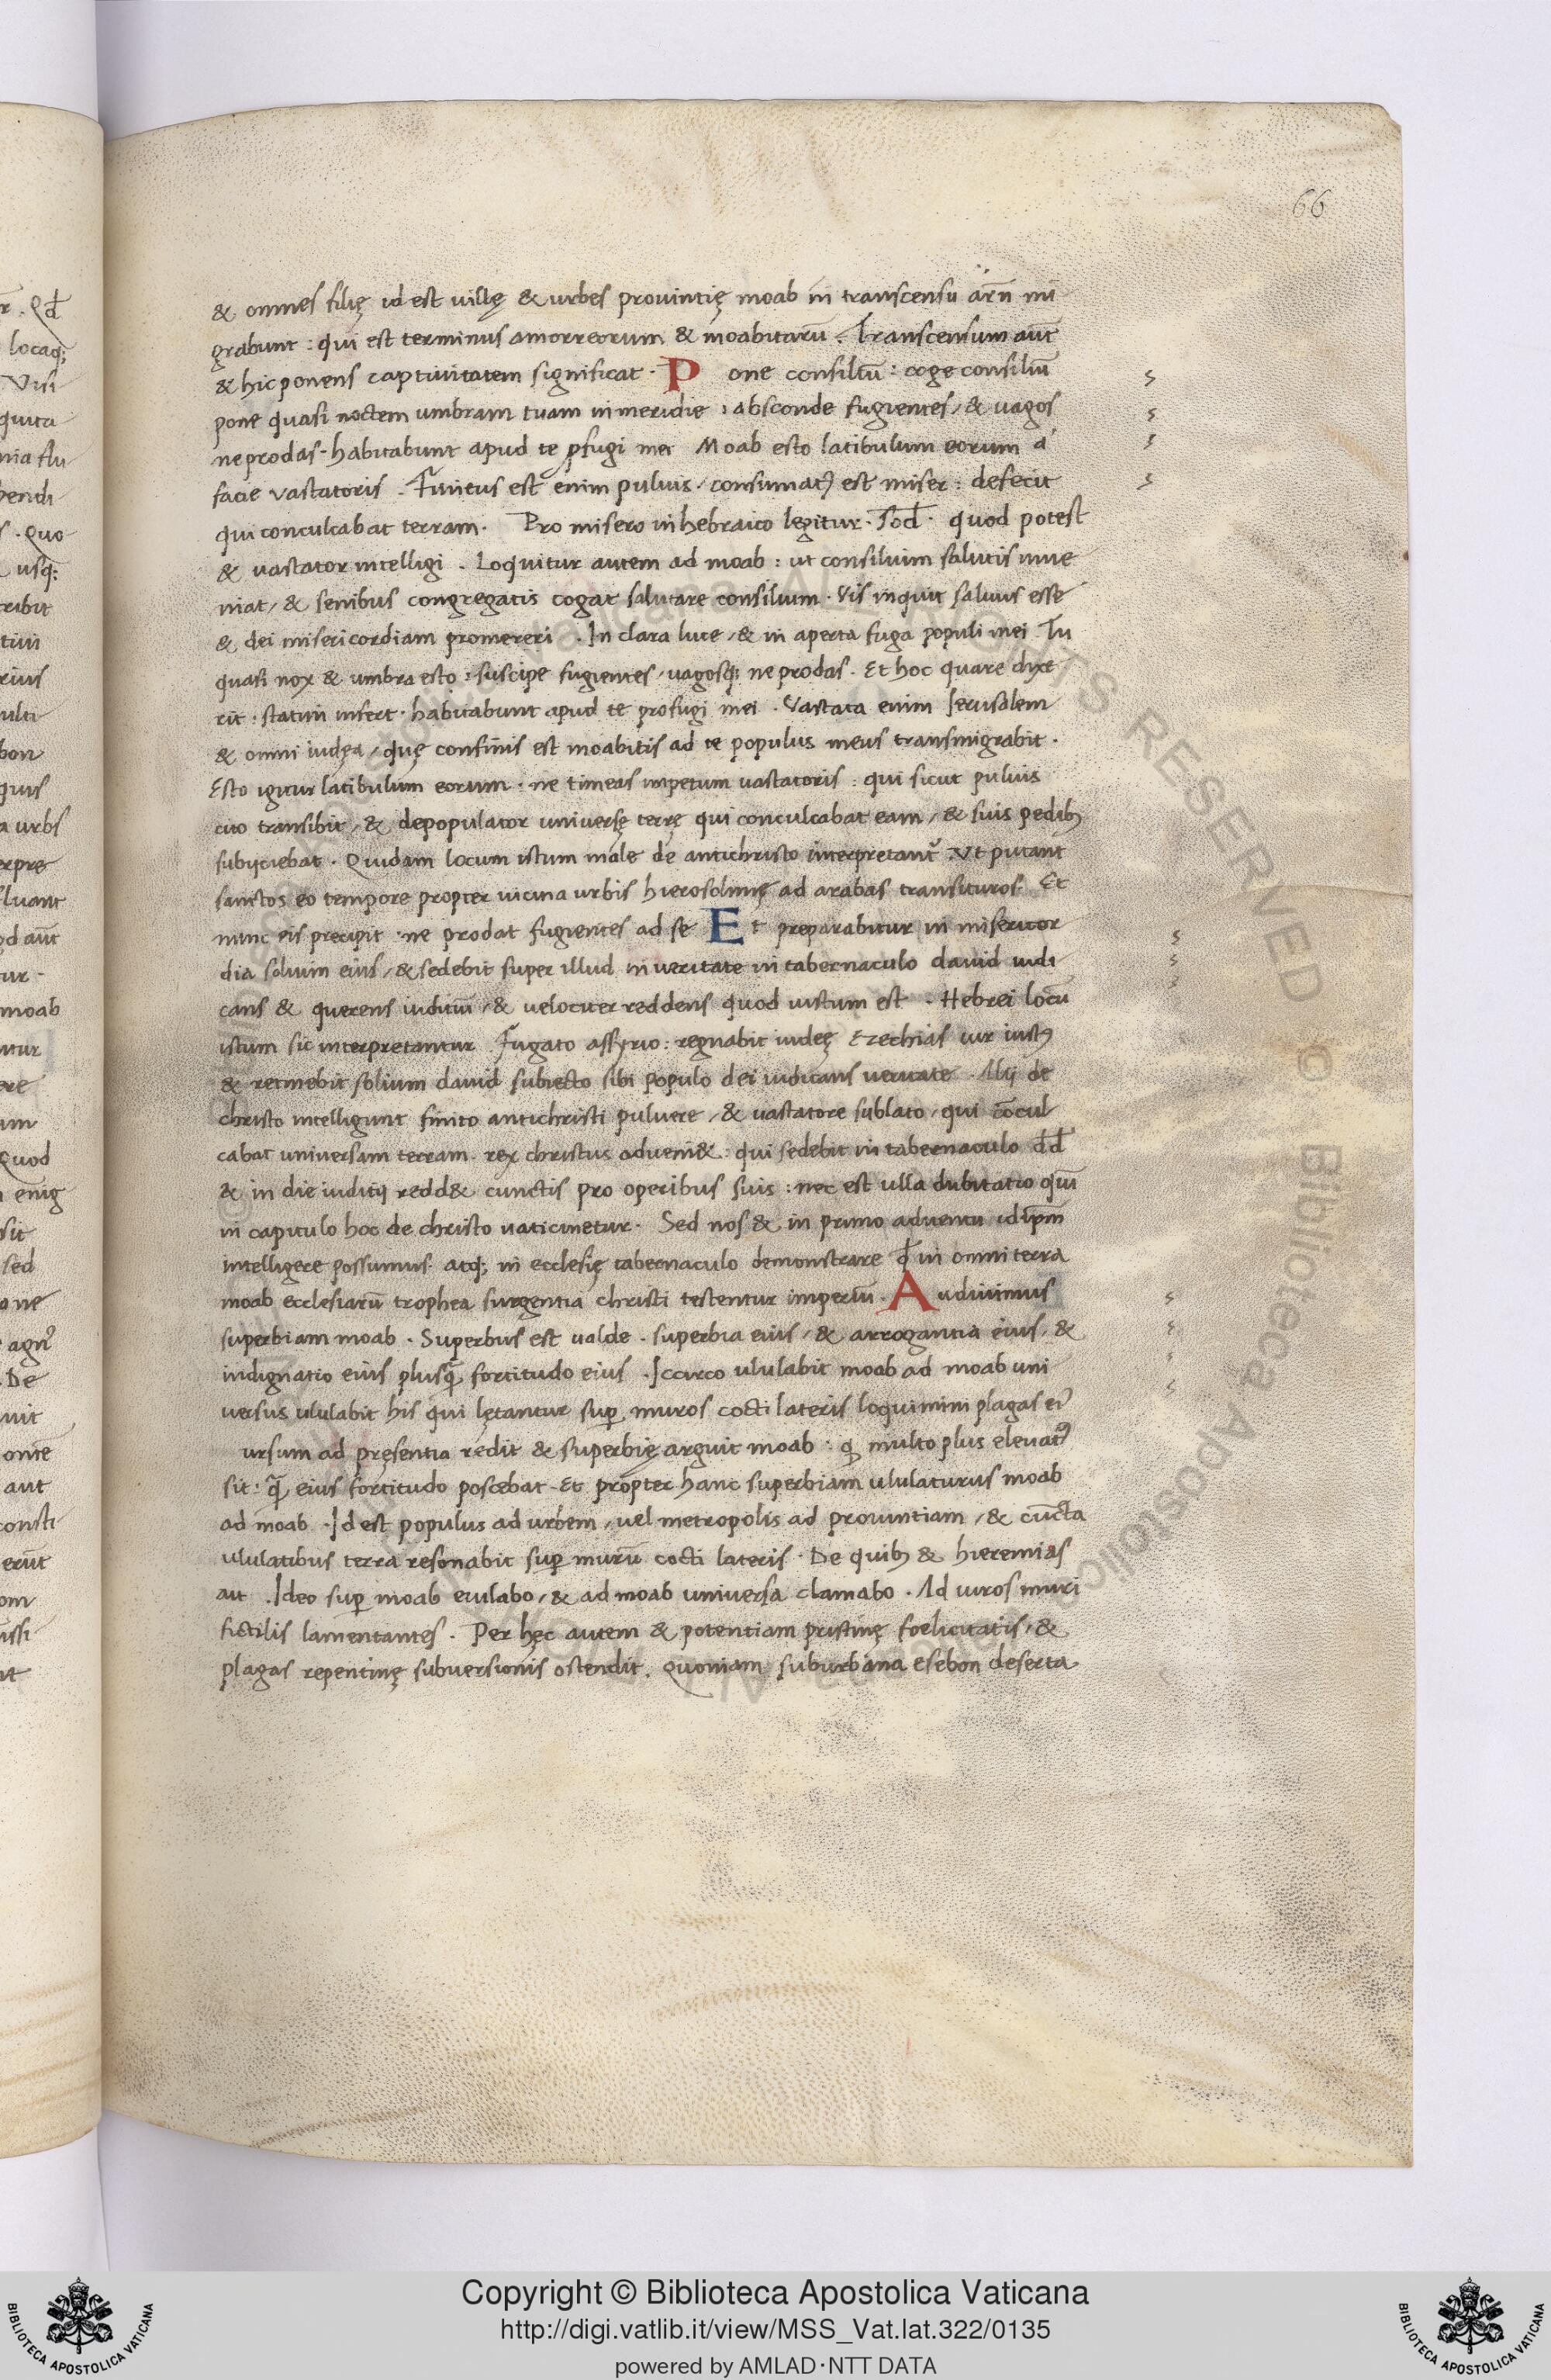 66
& omnes filię id est uillę & urbes prouintię moab in transcensu arn̄n mi
grabunt : qui est terminus amorreorum & moabitarū . Transcensum aūt
& hic ponens captiuitatem significat . P one consiliū : coge consiliū
pone quasi noctem umbram tuam in meridie : absconde fugientes / & uagos
ne prodas - habitabunt apud te ꝓfugi mei Moab esto latibulum eorum a
facie vastatoris . Finitus est enim puluis / consumatꝰ est miser : defecit
qui conculcabat terram . Pro misero in hebraico legitur . Sod̄ . quod potest
& vastator intelligi . Loquitur autem ad moab : ut consilium salutis inue
niat / & senibus congregatis cogat salutare consilium . Vis inquit saluus esse
& dei misericordiam promereri . In clara luce / & in aperta fuga populi mei Tu
quasi nox & umbra esto : suscipe fugientes / uagosq; ne prodas . Et hoc quare dixe
rit : statim infert . habitabunt apud te profugi mei . Vastata enim Ierusalem
& omni iudęa / quę confinis est moabitis ad te populus meus transmigrabit .
Esto igitur latibulum eorum . ne timeas impetum uastatoris : qui sicut puluis
cito transibit / & depopulator uniuersę terrę qui conculcabat eam / & suis pedibꝰ
subijciebat . Quidam locum istum male de antichristo interpretant᷑ . Vt putant
sanctos eo tempore propter uicina urbis hierosolimę ad arabas transituros . Et
nunc eis precipit . ne prodat fugientes ad se E t preparabitur in misericor
dia solium eius / & sedebit super illud in ueritate in tabernaculo dauid iudi
cans & querens iuditiū / & uelociter reddens quod iustum est . Hebrei locū
istum sic interpretantur Fugato assyrio : regnabit iudeę Ezechias uir iustꝰ
& retinebit solium dauid subiecto sibi populo dei iudicans ueritate . Alij de
christo intelligunt finito antichristi puluere / & uastatore sublato / qui cōcul
cabat uniuersam terram . rex christus adueni& : qui sedebit in tabernaculo d̄d̄
& in die iuditij redd& cunctis pro operibus suis : nec est ulla dubitatio quī
in capitulo hoc de christo uaticinetur . Sed nos & in primo aduentu id ip̄m
intelligere possumus . atq; in ecclesię tabernaculo demonstrare q̄ in omni terra
moab ecclesiarū trophea surgentia christi testentur imperiū . A udiuimus
superbiam moab . Superbus est ualde . superbia eius / & arrogantia eius / &
indignatio eius plusq̄ fortitudo eius . Iccirco ululabit moab ad moab uni
uersus ululabit his qui lętantur suꝑ muros cocti lateris loquimini plagas ei᷑
ursum ad pręsentia redit & superbię arguit moab : ꝙ multo plus eleuatꝰ
sit : q̄ eius fortitudo poscebat - Et propter hanc superbiam ululaturus moab
ad moab . Id est populus ad urbem / uel metropolis ad prouintiam / & cūcta
ululatibus terra resonabit suꝑ murū cocti lateris . De quibꝰ & hieremias
ait . Ideo suꝑ moab eiulabo / & ad moab uniuersa clamabo . Ad uiros muri
fictilis lamentantes . Per hęc autem & potentiam pristinę foelicitatis / &
plagas repentinę subuersionis ostendit . Quoniam suburbana esebon deserta
Copyright © Biblioteca Apostolica Vaticana
http://digi.vatlib.it/view/MSS_Vat.lat.322/0135
powered by AMLAD·NTT DATA